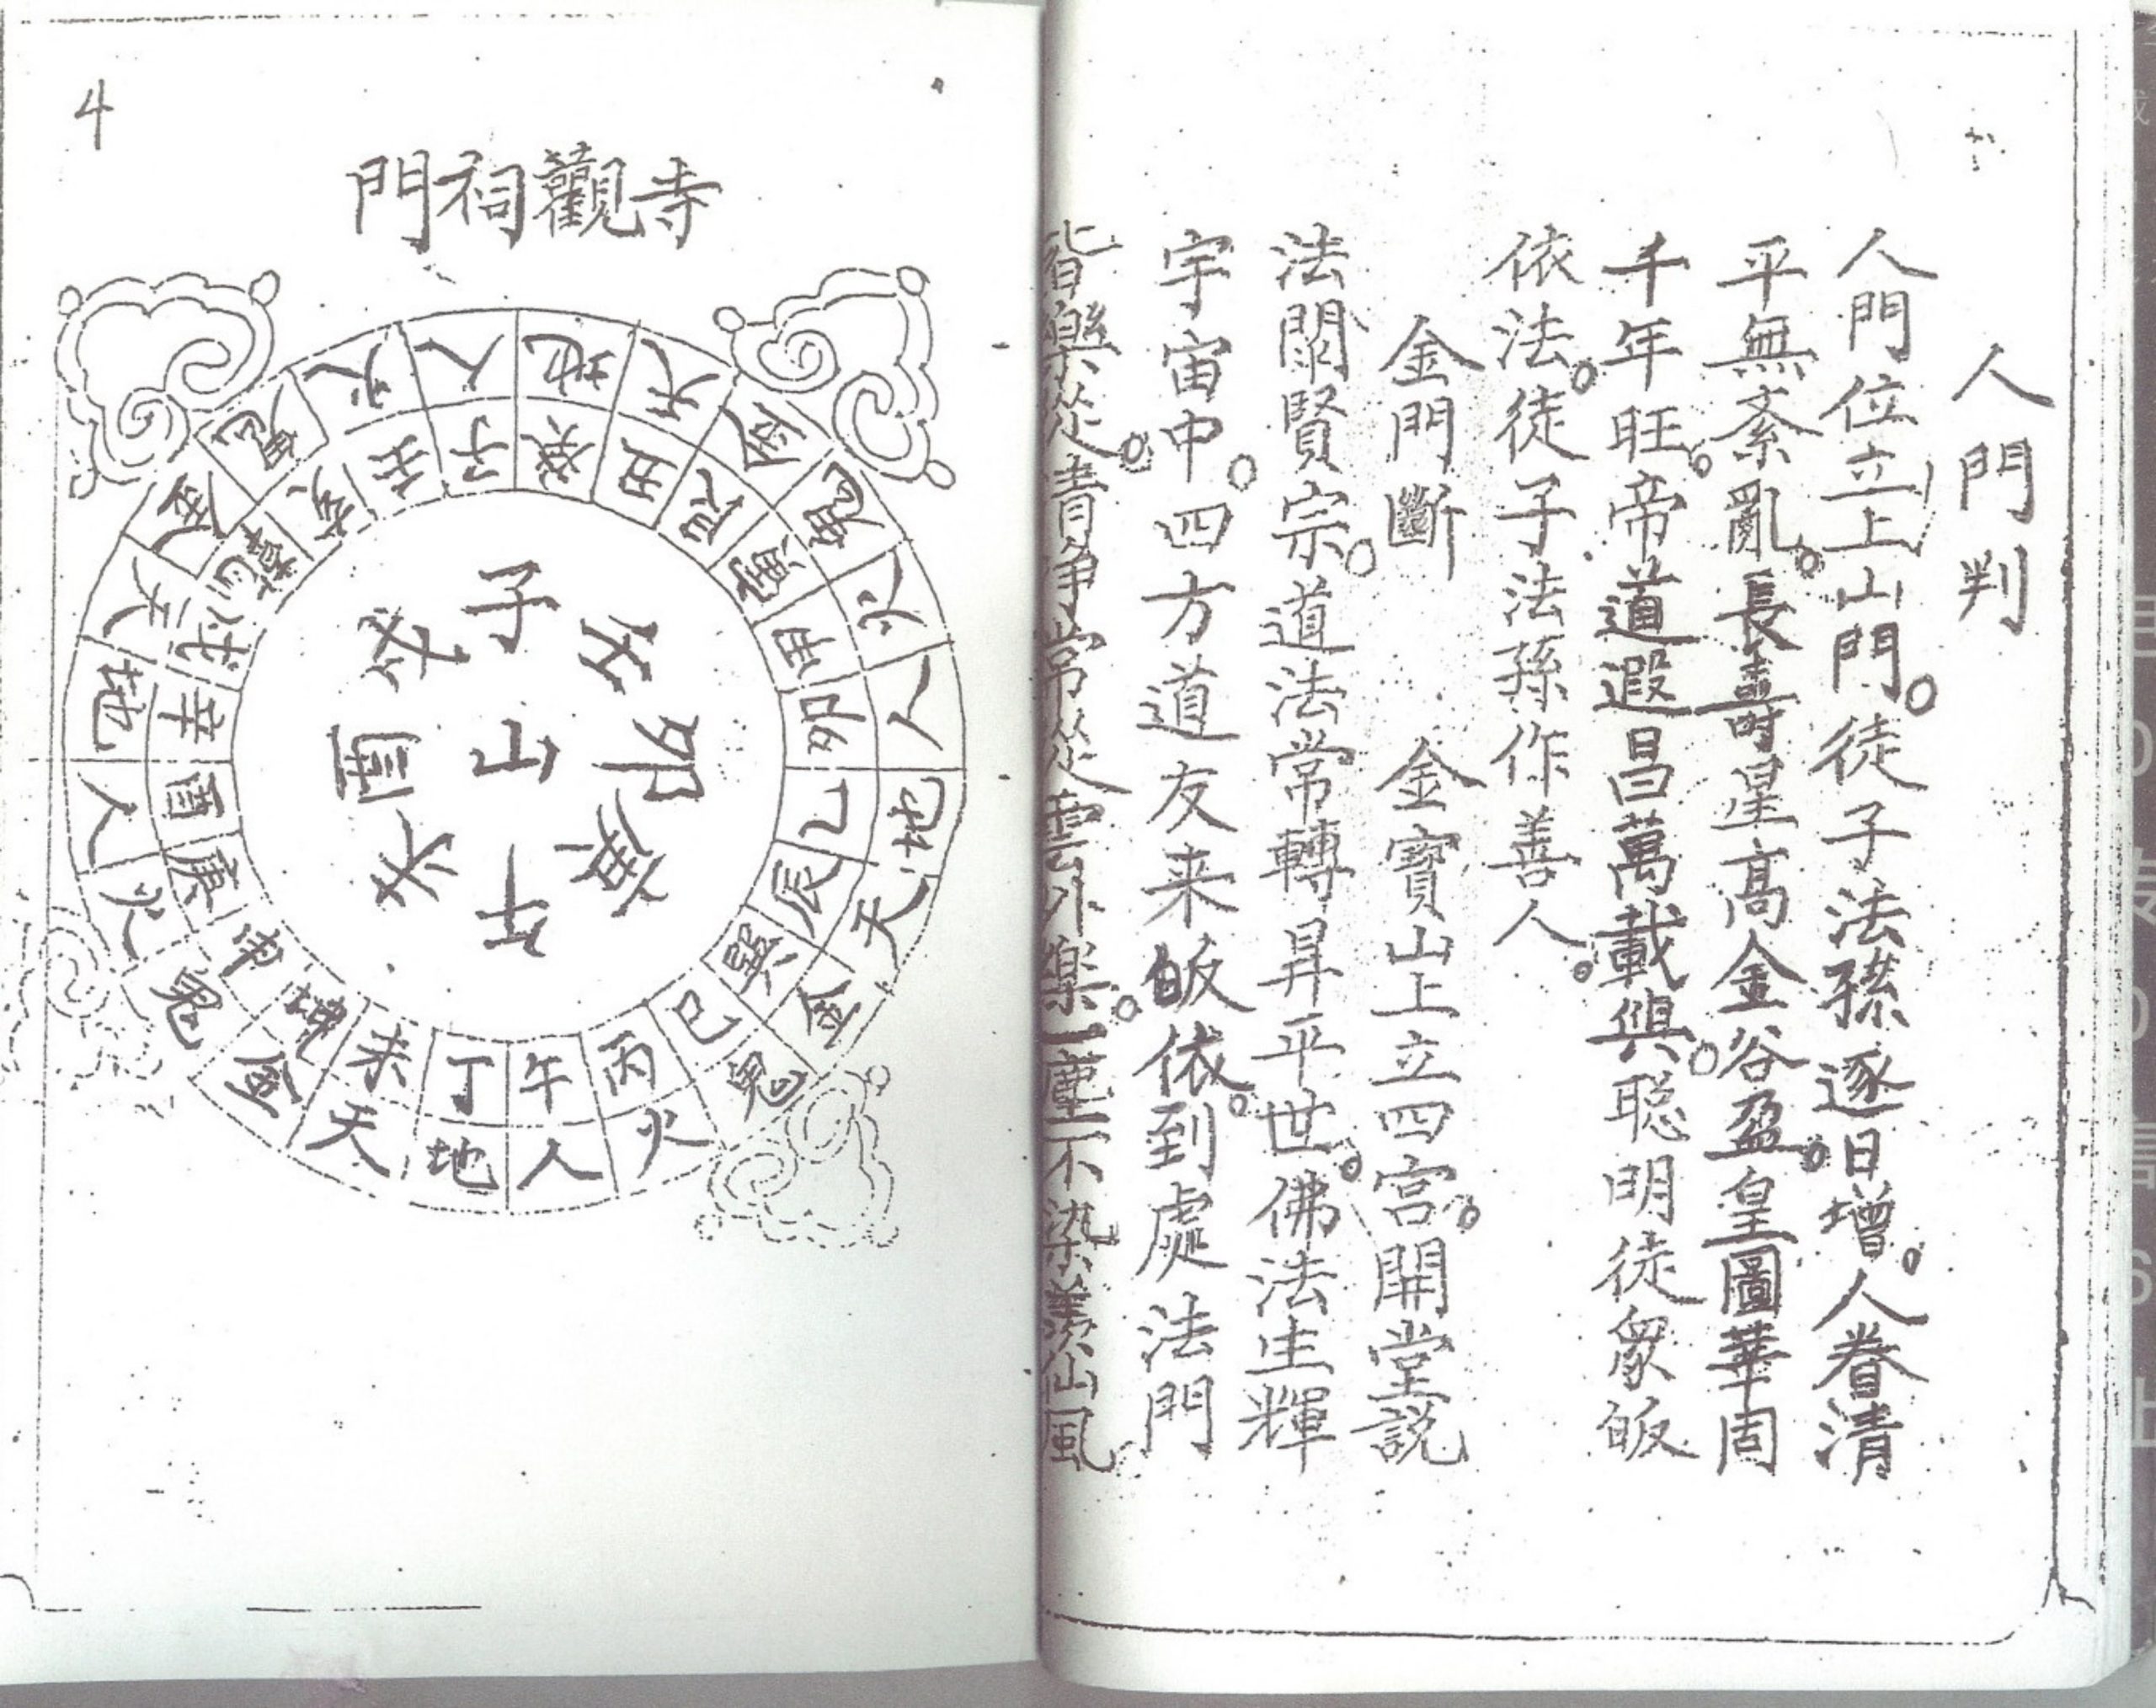 人門判
人門位立上山門。徒子法孫逐日增。人眷清
平無紊亂。長壽星高金谷盈。皇圖華固
千年旺。帝道遐昌萬載興。聪明徒衆皈
依法。徒子法孫作善人。
金門斷　金寶山上立四宫。開堂説
法闡賢宗。道法常轉昇平世。佛法生輝
宇宙中。四方道友来皈依。到處法門
皆樂从。清淨常从雲外樂。一塵不染羨仙風
4
寺觀祠門
地天金鬼火人地天金鬼火人地天金鬼火人地天金鬼火人
癸丑艮寅甲卯乙辰巽巳丙午丁未坤申庚酉辛戌乾亥壬子
子
卯
午
酉
山